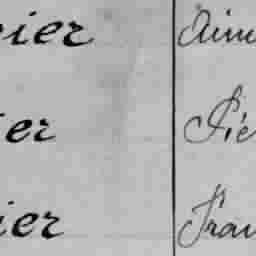 ier Aim
ier Pie
ier Fran